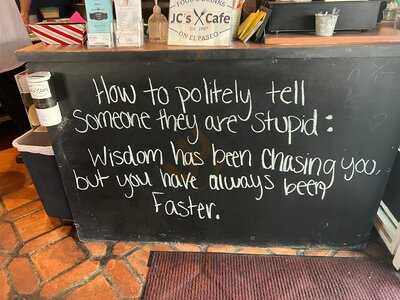 JC's X Cafe
ON EL PASEO
How to politely tell
someone they are stupid:
Wisdom has been chasing you,
but you have always been
Faster.